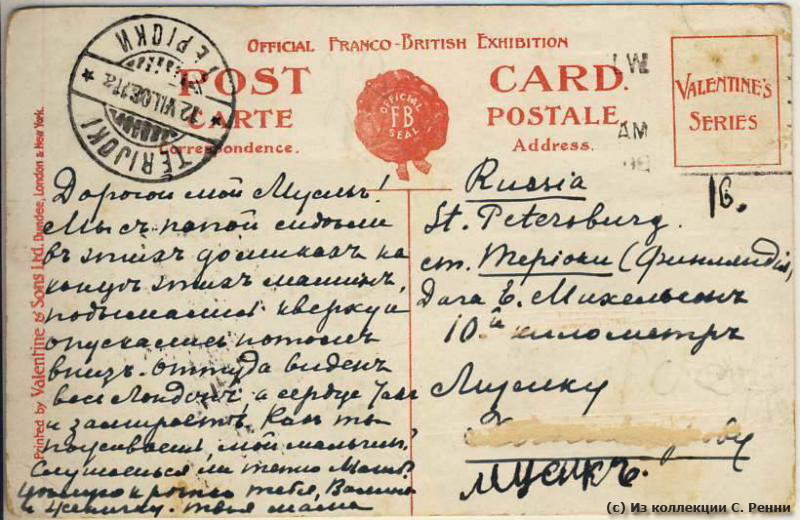 Official Franco-British Exhibition
POST CARD.
CARTE POSTALE
Correspondence. Address.
OFFICIAL
FB
SEAL
VALENTINE'S
SERIES
TERIJOKI
12.VII.08.
ТЕРІОКИ
LW
AM
Printed by Valentine & Sons Ltd. Dundee, London & New York.
Дорогой мой Мусикъ!
Мы съ папой сидѣли
въ этихъ домикахъ на
концѣ этихъ машинъ,
подымались кверху и
опускались потомъ
внизъ. Оттуда виденъ
весь Лондонъ и сердце
и замираетъ. Какъ ты
поживаешь, мой мальчикъ?
Слушаешься ли тетю
Цѣлую крѣпко тебя,
и твоя мама
Russia
16.
St. Petersburg.
ст. Теріоки (Финляндія)
Дача Е. Михельсонъ
10й километръ
Мусику
МУСИКЪ.
(с) Из коллекции С. Ренни